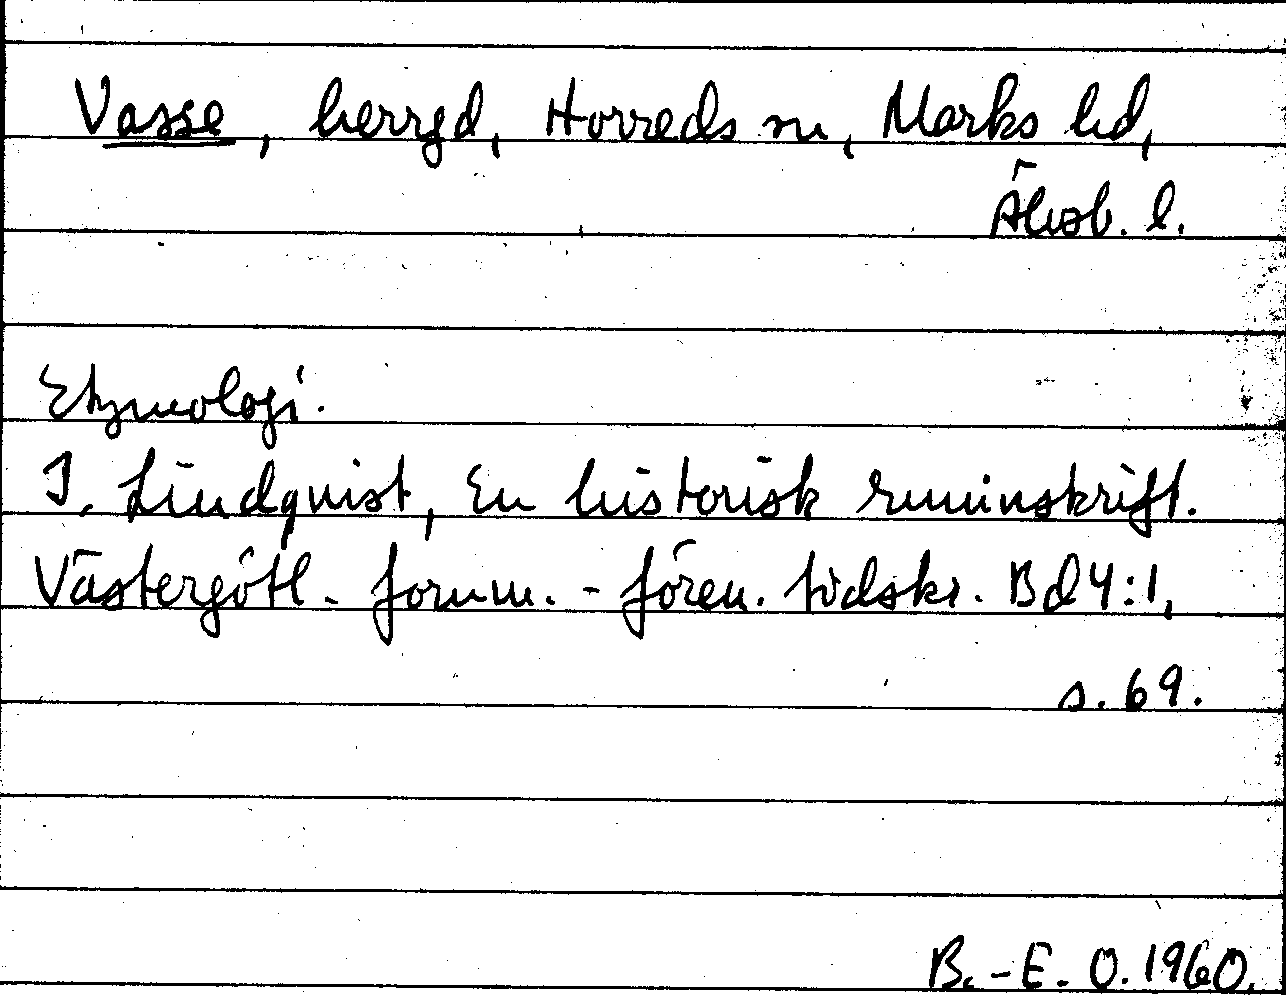 Vasse, herrgd, Horreds sn, Marks hd,
Älvsb. l.
Etymologi.
I. Lindqvist, En historisk runinskrift.
Västergötl. fornm. - fören. tidskr. Bd 4:1,
s. 69.
B.-E. O. 1960.